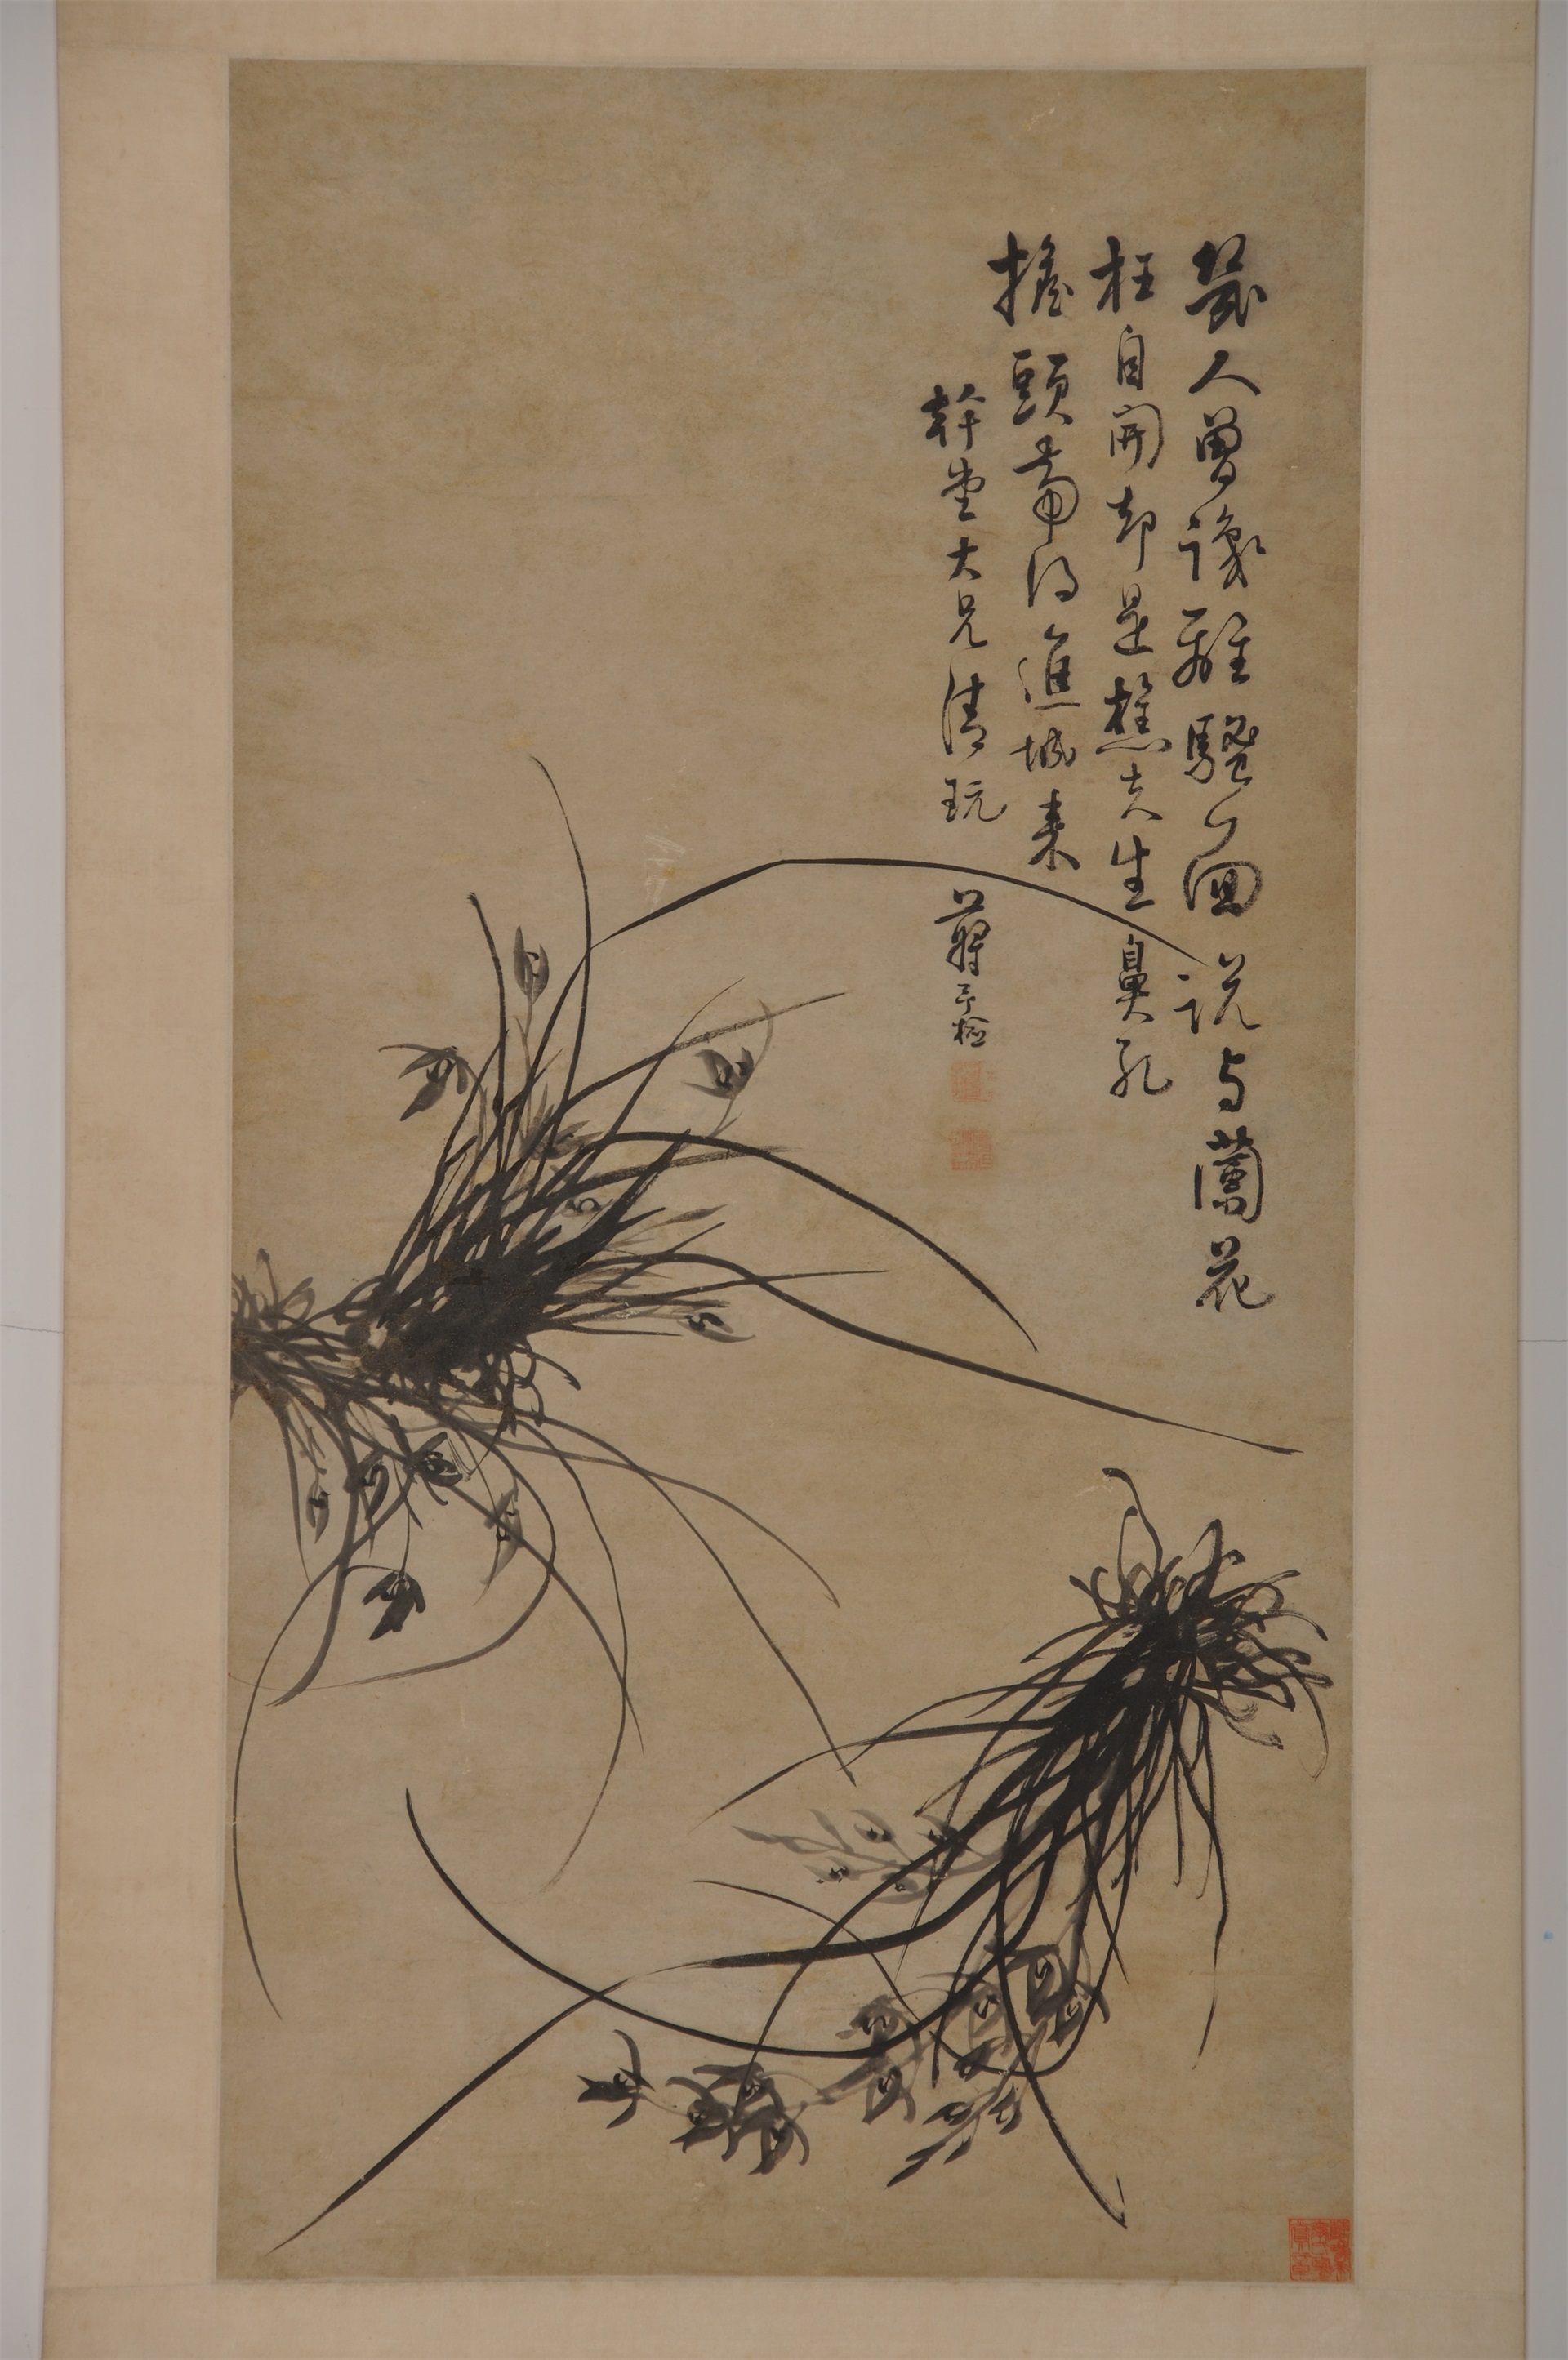 幾人曾讀離騷面說与蘭花
枉自開却是樵夫生鼻孔
擔頭帶得進城來
幹堂大兄清玩 蔣予檢